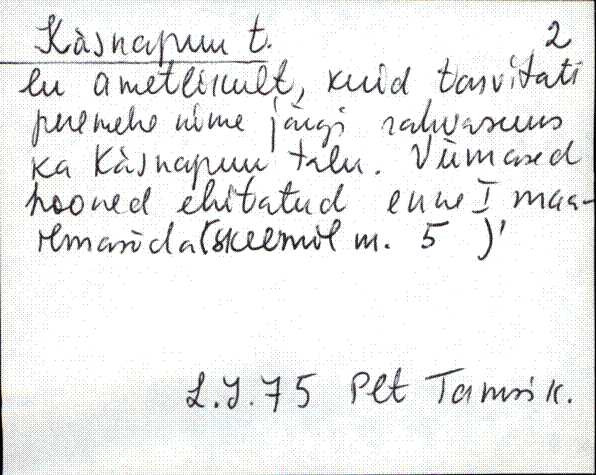 Kàsnapuu t. 2
lu ametlikult, kuid tarvitati
peremehe nime järgi rahvasuus
ka Kàsnapuu talu. Viimased
hooned ehitatud enne I maa-
ilmasõda (skeemil m. 5 )
L.J.75 Plt Tamsik.